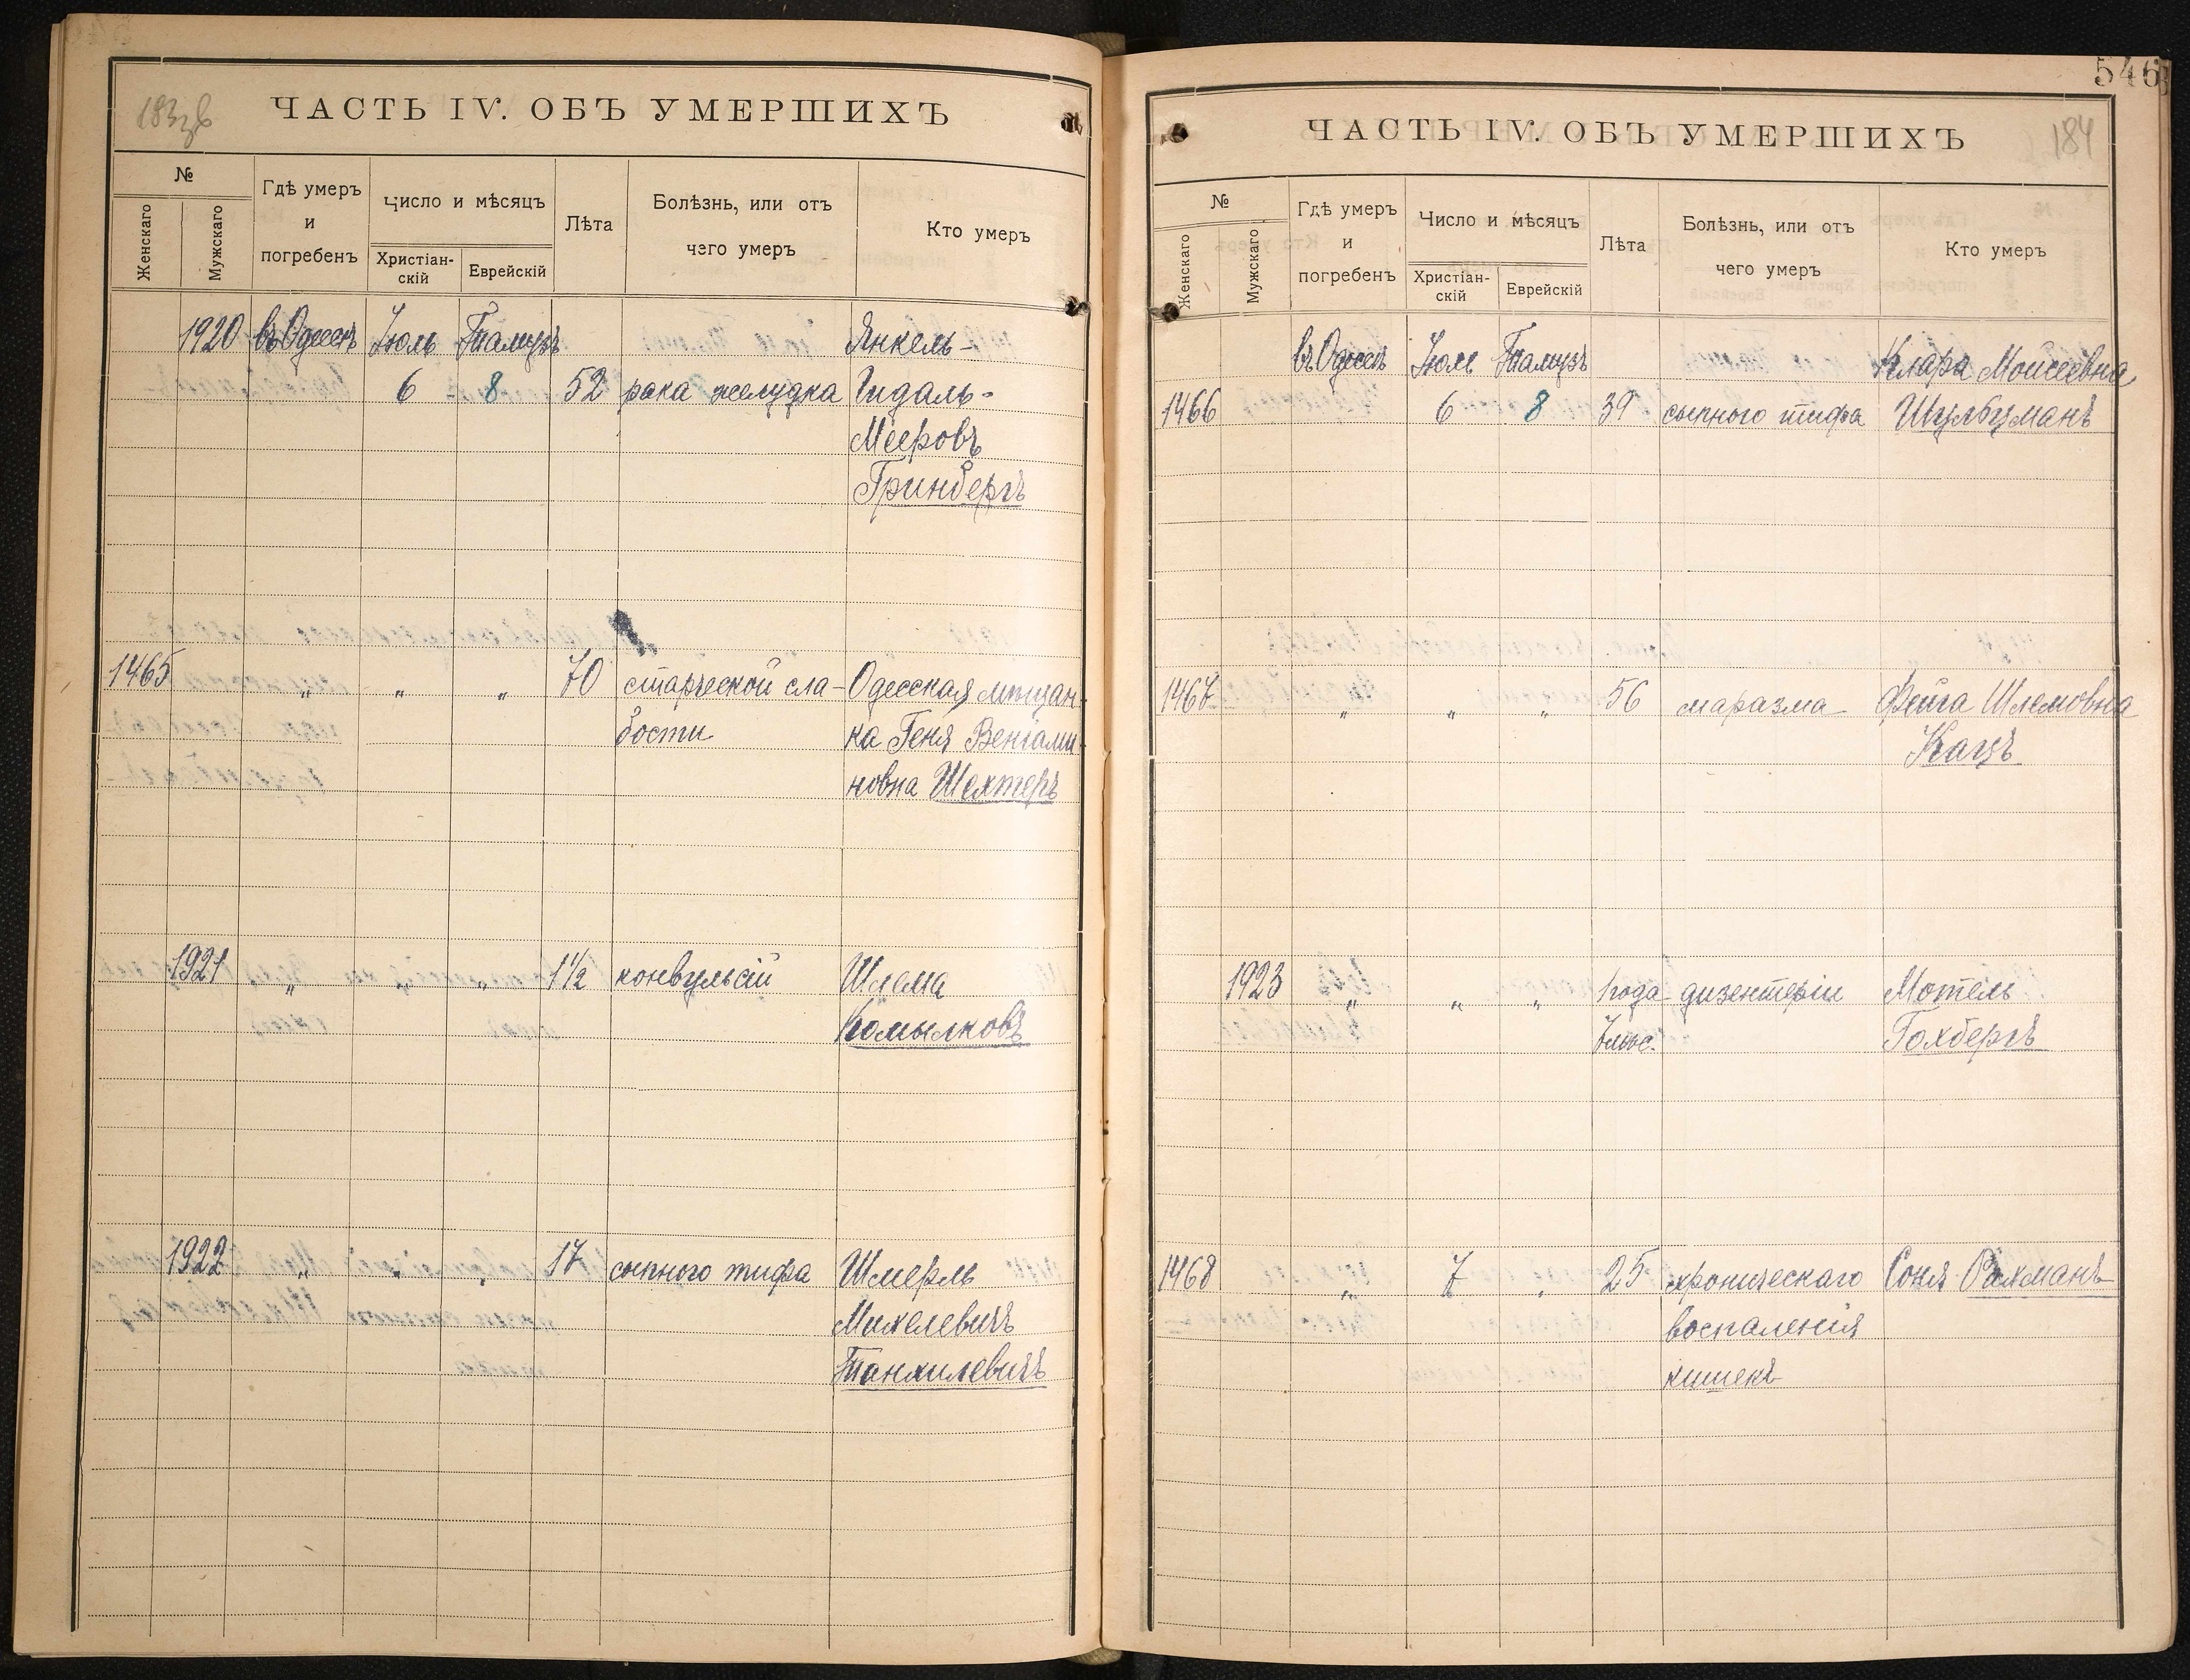 183об
ЧАСТЬ IV. ОБЪ УМЕРШИХЪ
№
Женскаго
Мужскаго
Гдѣ умеръ
и
погребенъ
Число и мѣсяцъ
Христіан-
скій
Еврейскій
Лѣта
Болѣзнь, или отъ
чего умеръ
Кто умеръ
1920 въ Одессѣ Іюль Тамузъ Янкель-
6 8 52 рака желудка Гидаль-
Мееровъ
Гринбергъ
1465 „ „ „ 70 старческой сла- Одесская мѣщан-
бости ка Геня Веніами-
новна Шехтеръ
1921 „ „ „ 1½ конвульсій Шлема
Комылковъ
1922 „ „ „ 17 сыпного тифа Шмерль
Михелевичъ
Танхилевичъ
546
184
ЧАСТЬ IV. ОБЪ УМЕРШИХЪ
№
Женскаго
Мужскаго
Гдѣ умеръ
и
погребенъ
Число и мѣсяцъ
Христіан-
скій
Еврейскій
Лѣта
Болѣзнь, или отъ
чего умеръ
Кто умеръ
въ Одессѣ Іюль Тамузъ Клара Моисеевна
1466 6 8 39 сыпного тифа Шульцманъ
1467 „ „ „ 56 маразма Фейга Шлемовна
Кацъ
1923 „ „ „ 1 года дизентеріи Мотель
7 мѣс. Гохбергъ
1468 „ 7 „ 25 хроническаго Соня Рахманъ
воспаленія
кишекъ